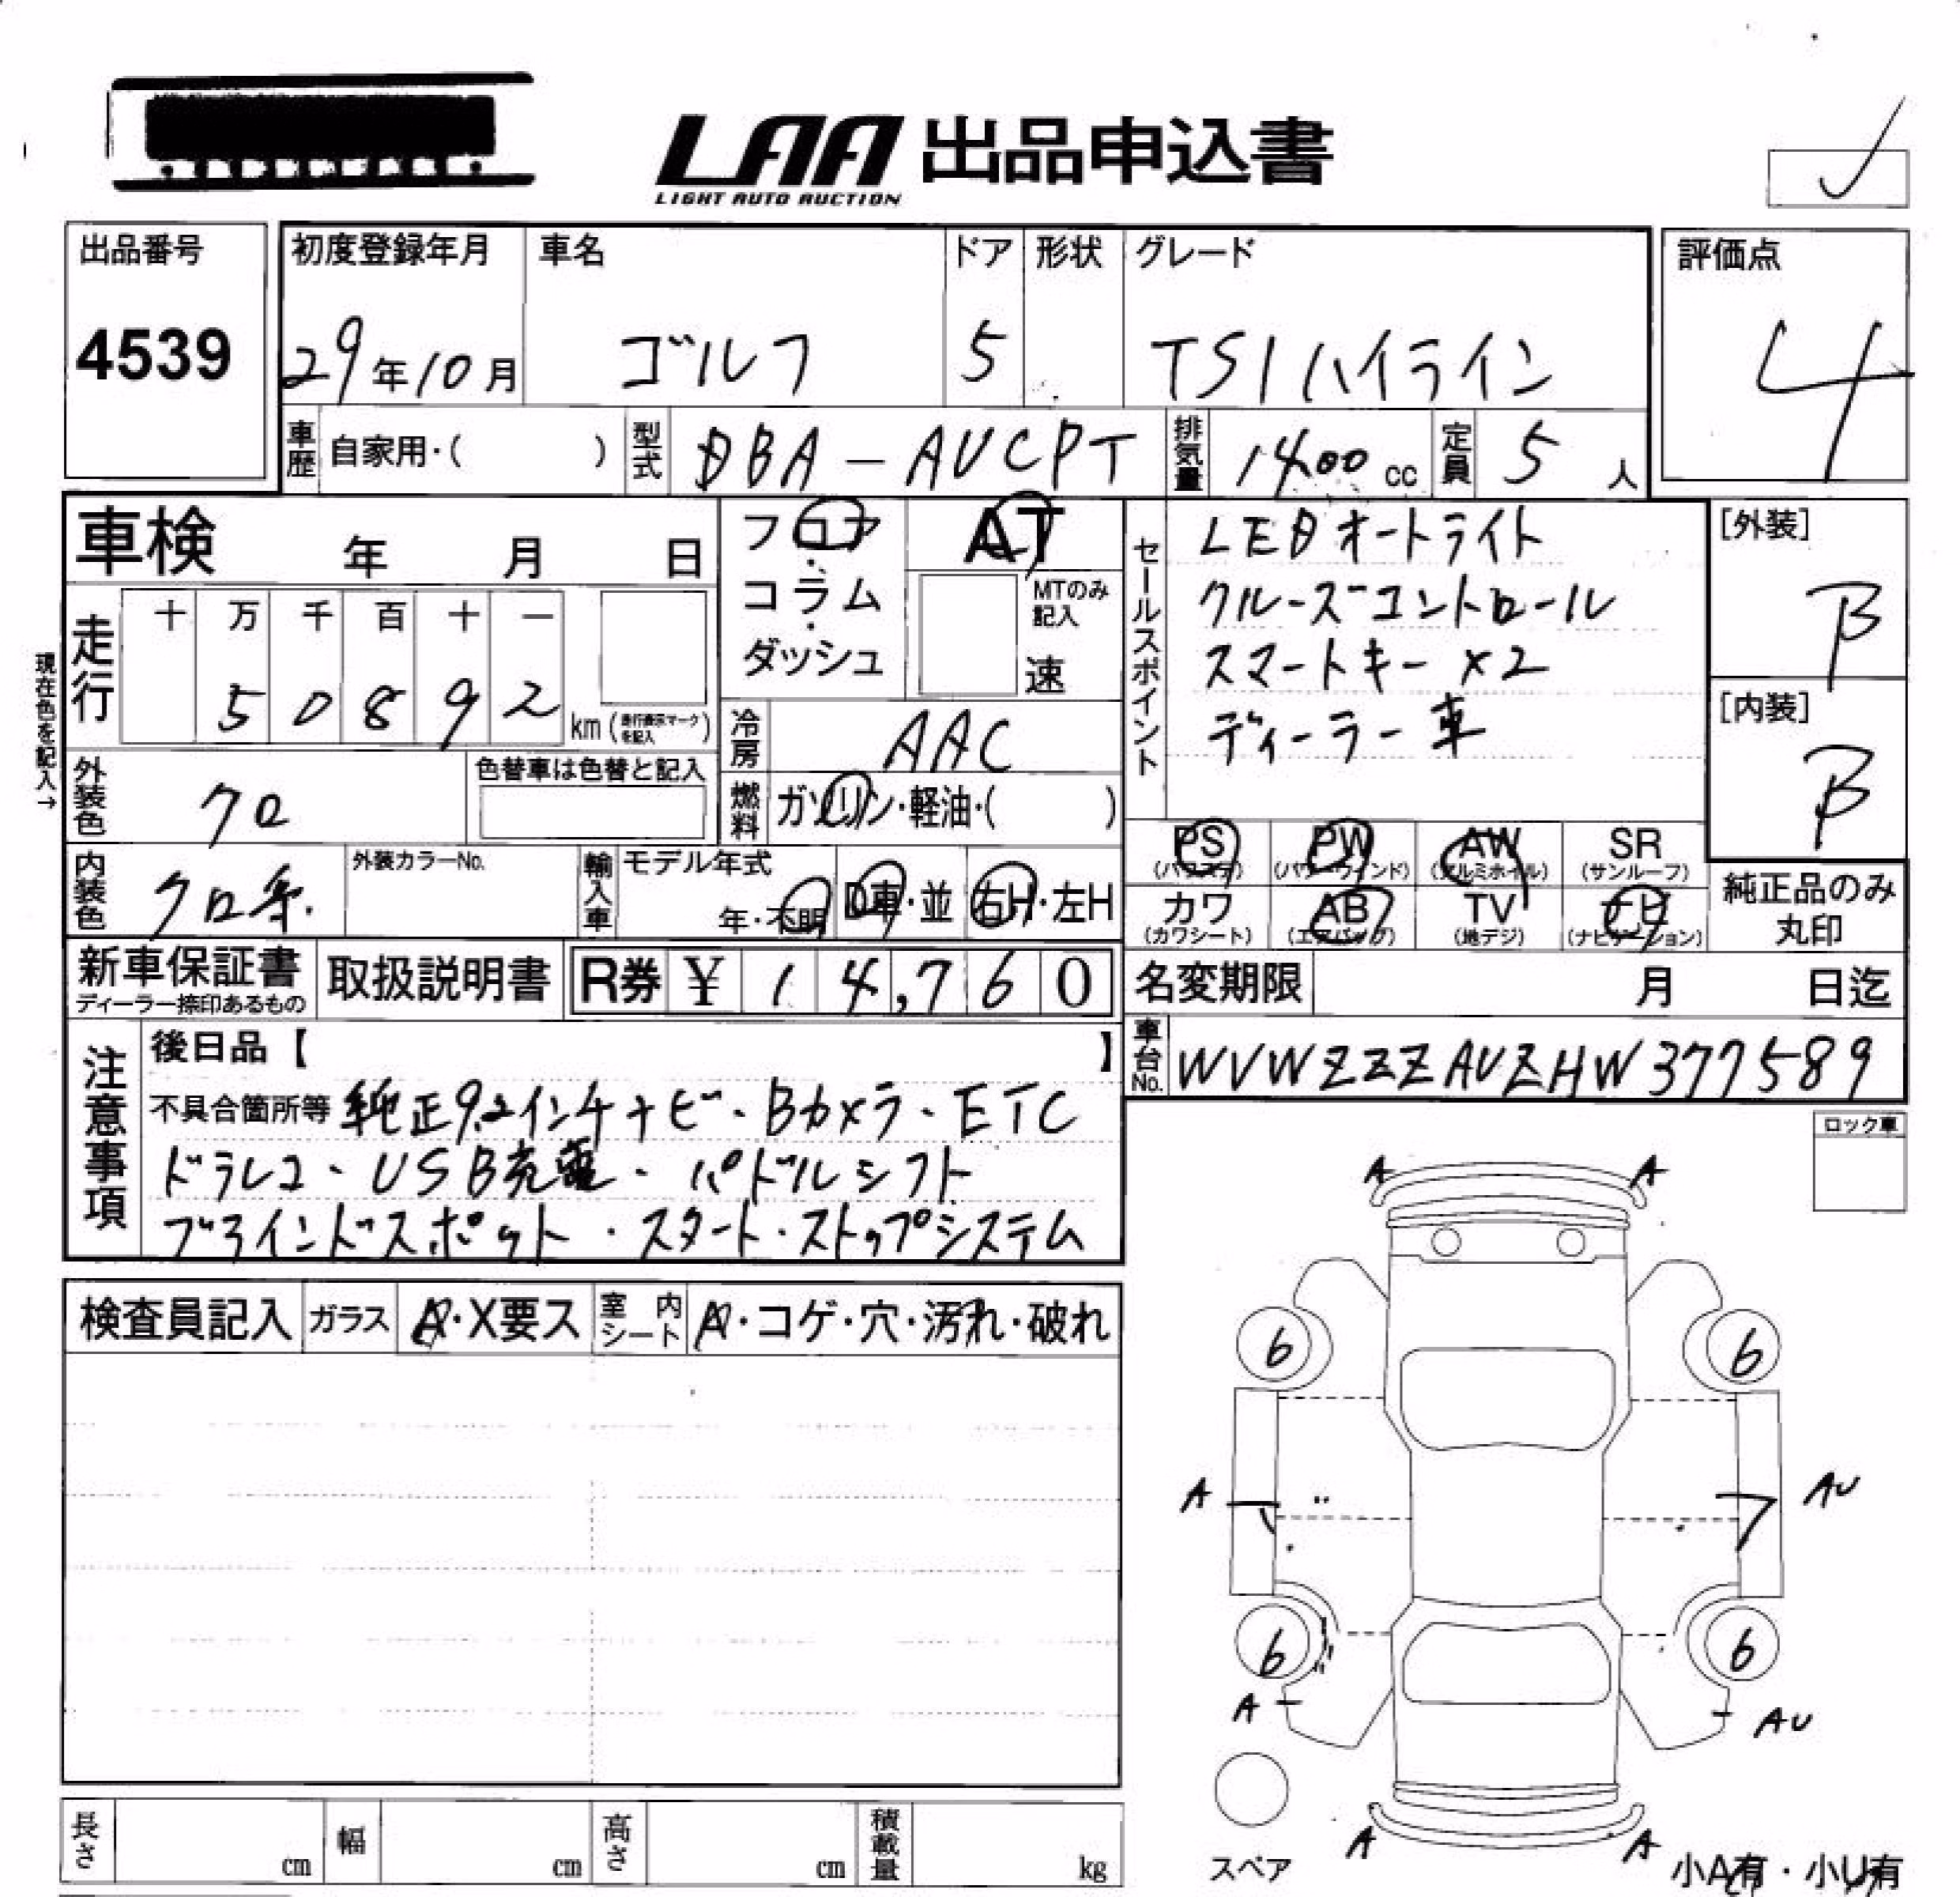 LAA 出品申込書
LIGHT AUTO AUCTION
出品番号 4539
初度登録年月 29年10月
車名 ゴルフ
ドア 5
形状
グレード TSIハイライン
評価点 4
車歴 自家用・( )
型式 DBA-AUCPT
排気量 1400 cc
定員 5 人
車検 年 月 日
フロア
コラム
ダッシュ
AT
MTのみ記入
速
セールスポイント
LEDオートライト
クルーズコントロール
スマートキー×2
ディーラー車
[外装] B
[内装] B
現在色を記入→
走行 十 万 千 百 十 一
5 0 8 9 2 km (走行表示マークを記入)
冷房 AAC
燃料 ガソリン・軽油・( )
外装色 クロ
色替車は色替と記入
内装色 クロ系
外装カラーNo.
輸入車 モデル年式 年・不明
D車・並
右H・左H
PS (パワステ)
PW (パワーウィンド)
AW (アルミホイル)
SR (サンルーフ)
カワ (カワシート)
AB (エアバッグ)
TV (地デジ)
ナビ (ナビゲーション)
純正品のみ丸印
新車保証書
ディーラー捺印あるもの
取扱説明書
R券 ¥ 14,760
名変期限 月 日迄
車台No. WVWZZZAUZHW377589
注意事項
後日品【 】
不具合箇所等 純正9.2インチナビ・Bカメラ・ETC
ドラレコ・USB充電・パドルシフト
ブラインドスポット・スタート・ストップシステム
ロック車
A A
検査員記入 ガラス A・X要ス 室内シート A・コゲ・穴・汚れ・破れ
6 6
A AU
6 6
A AU
スペア
A A
長さ cm 幅 cm 高さ cm 積載量 kg
小A有・小U有